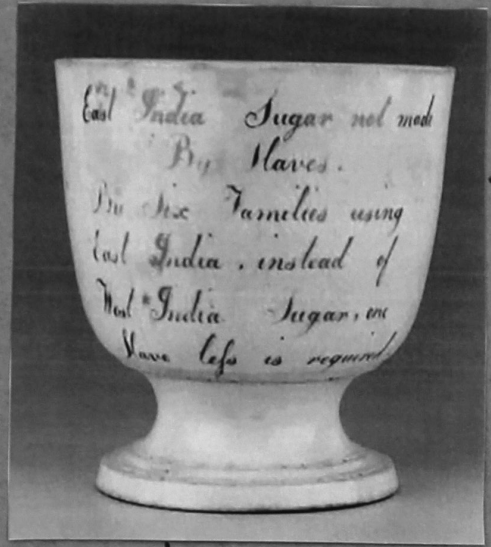 East India Sugar not made
By Slaves.
By Six Families using
East India, instead of
West India Sugar, one
Slave less is required